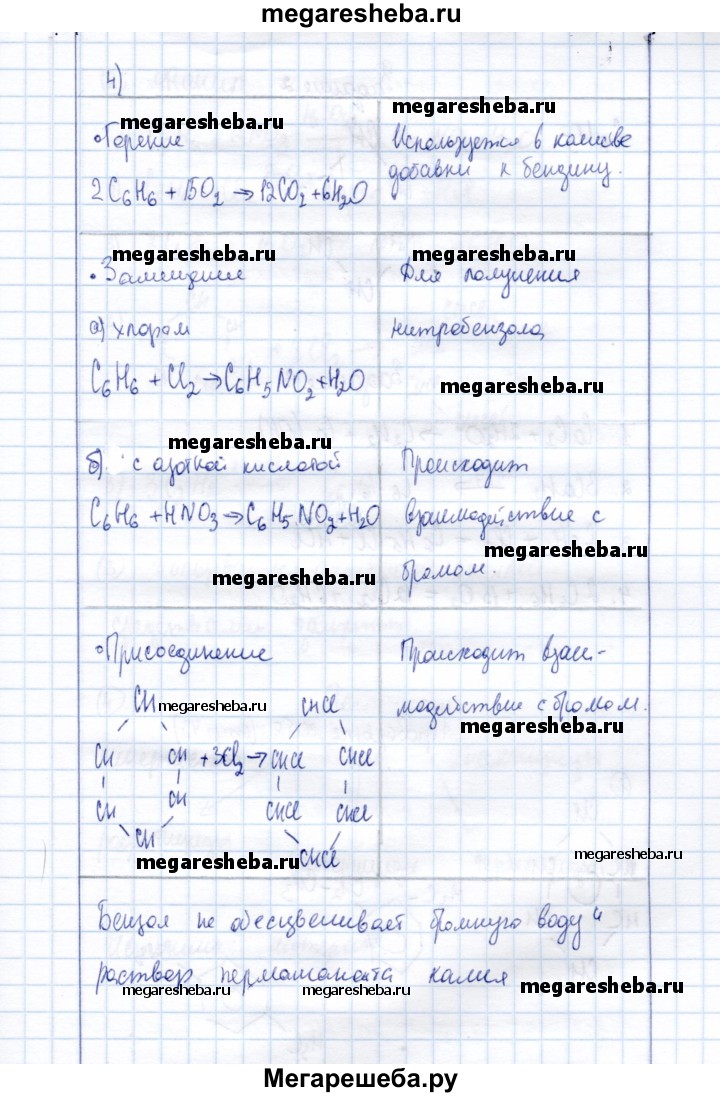 megaresheba.ru
4)
Горение
megaresheba.ru
2C₆H₆ + 15O₂ → 12CO₂ + 6H₂O
megaresheba.ru
Используется в качестве
добавки к бензину.
megaresheba.ru
• Замещение
а) хлором
C₆H₆ + Cl₂ → C₆H₅NO₂ + H₂O
megaresheba.ru
Для получения
нитробензола
megaresheba.ru
megaresheba.ru
б) с азотной кислотой
C₆H₆ + HNO₃ → C₆H₅NO₂ + H₂O
megaresheba.ru
Происходит
взаимодействие с
megaresheba.ru
бромом.
Присоединение
CH megaresheba.ru CHCl
CH CH + 3Cl₂ → CHCl CHCl
CH CH CHCl CHCl
CH CHCl
megaresheba.ru
Происходит взаи-
модействие с бромом.
megaresheba.ru
megaresheba.ru
Бензол не обесцвечивает бромную воду и
раствор перманганата калия
megaresheba.ru megaresheba.ru megaresheba.ru
Мегарешеба.ру